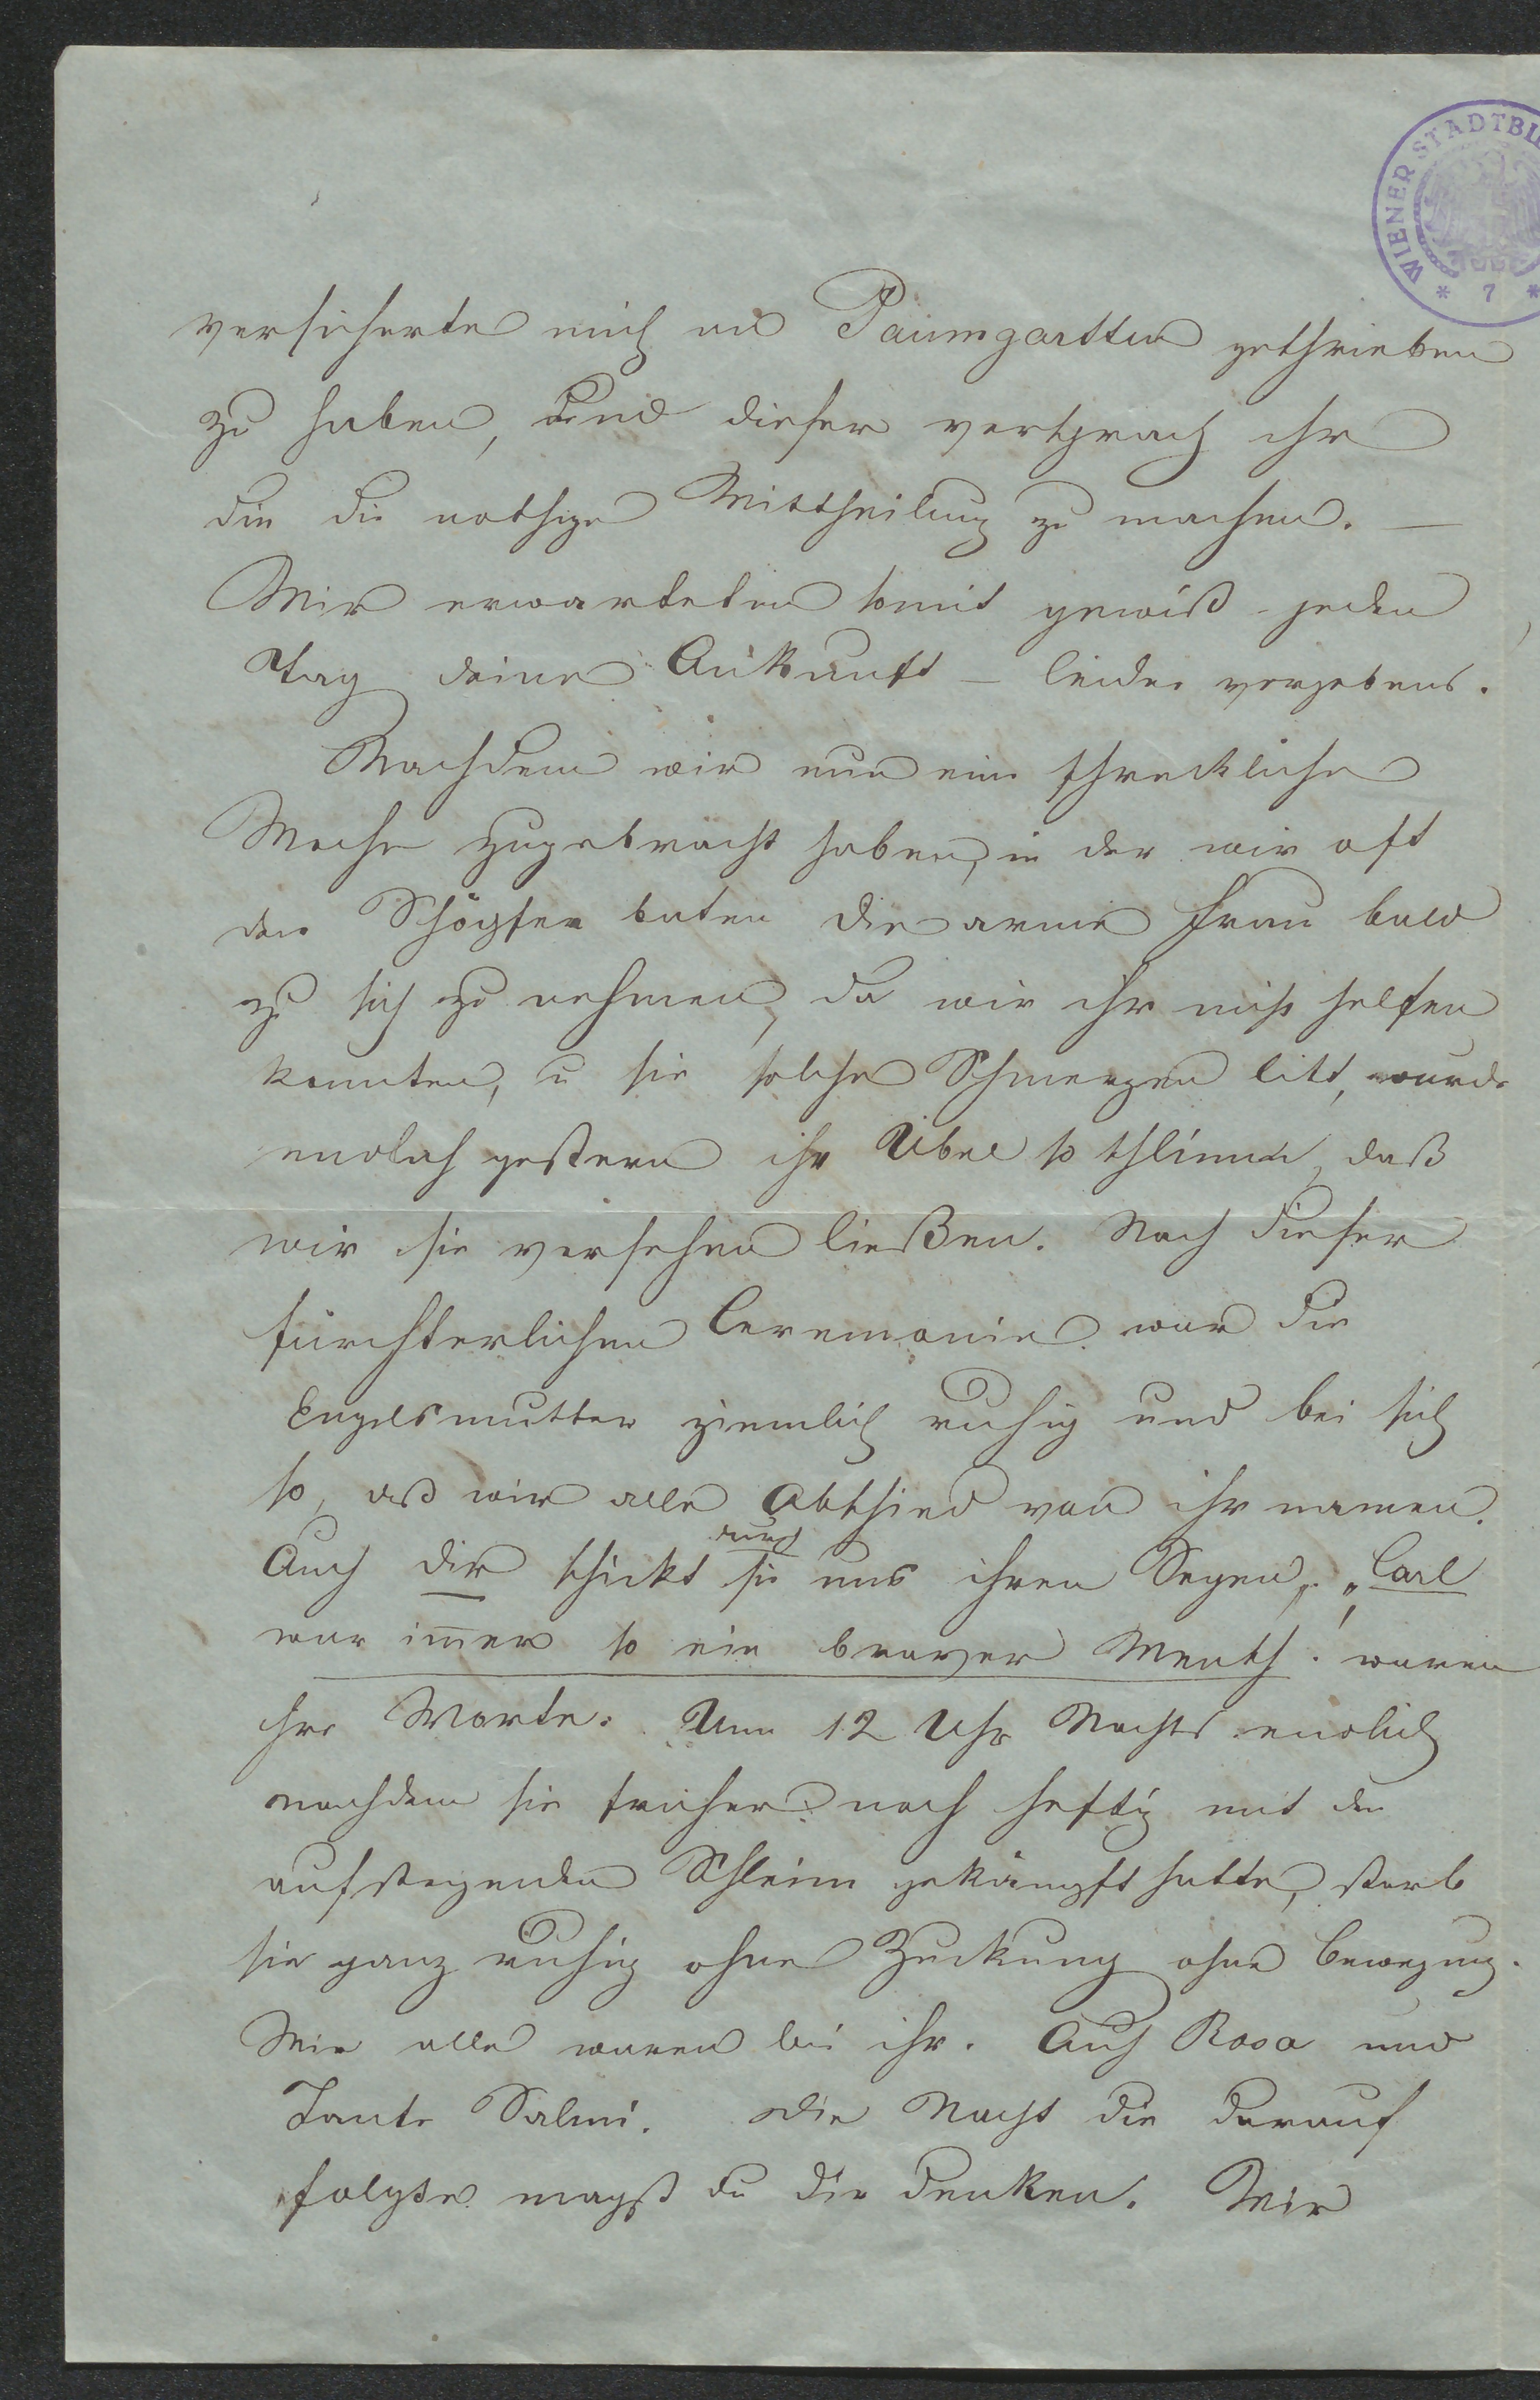 WIENER STADTBI
* 7 *
versicherte mich an Paumgartten geschrieben
zu haben, und dieser versprach ihr
dir die nothige Mittheilung zu machen. —
Wir erwarteten somit gewiß jeden
Tag deine Ankunft – leider vergebens.
Nachdem wir nun eine schreckliche
Woche zugebracht haben, in der wir oft
den Schöpfer baten die arme Frau bald
zu sich zu nehmen, da wir ihr nicht helfen
konnten, u sie solche Schmerzen litt, wurde
endlich gestern ihr Übel so schlimm, daß
wir sie versehen ließen. Nach dieser
fürchterlichen Ceremonie war die
Engelsmutter ziemlich ruhig und bei sich
so, daß wir alle Abschied von ihr namen.
durch
Auch dir schickt sie uns ihren Segen, „Carl
war im̄er so ein braver Mensch! waren
ihre Worte. Um 12 Uhr Nachts endlich
nachdem sie früher noch heftig mit dem
aufsteigenden Schleim gekämpft hatte, starb
sie ganz ruhig ohne Zuckung ohne Bewegung.
Wir alle waren bei ihr. Auch Rosa und
Tante Salmi. Die Nacht die darauf
folgte magst du dir denken. Wir